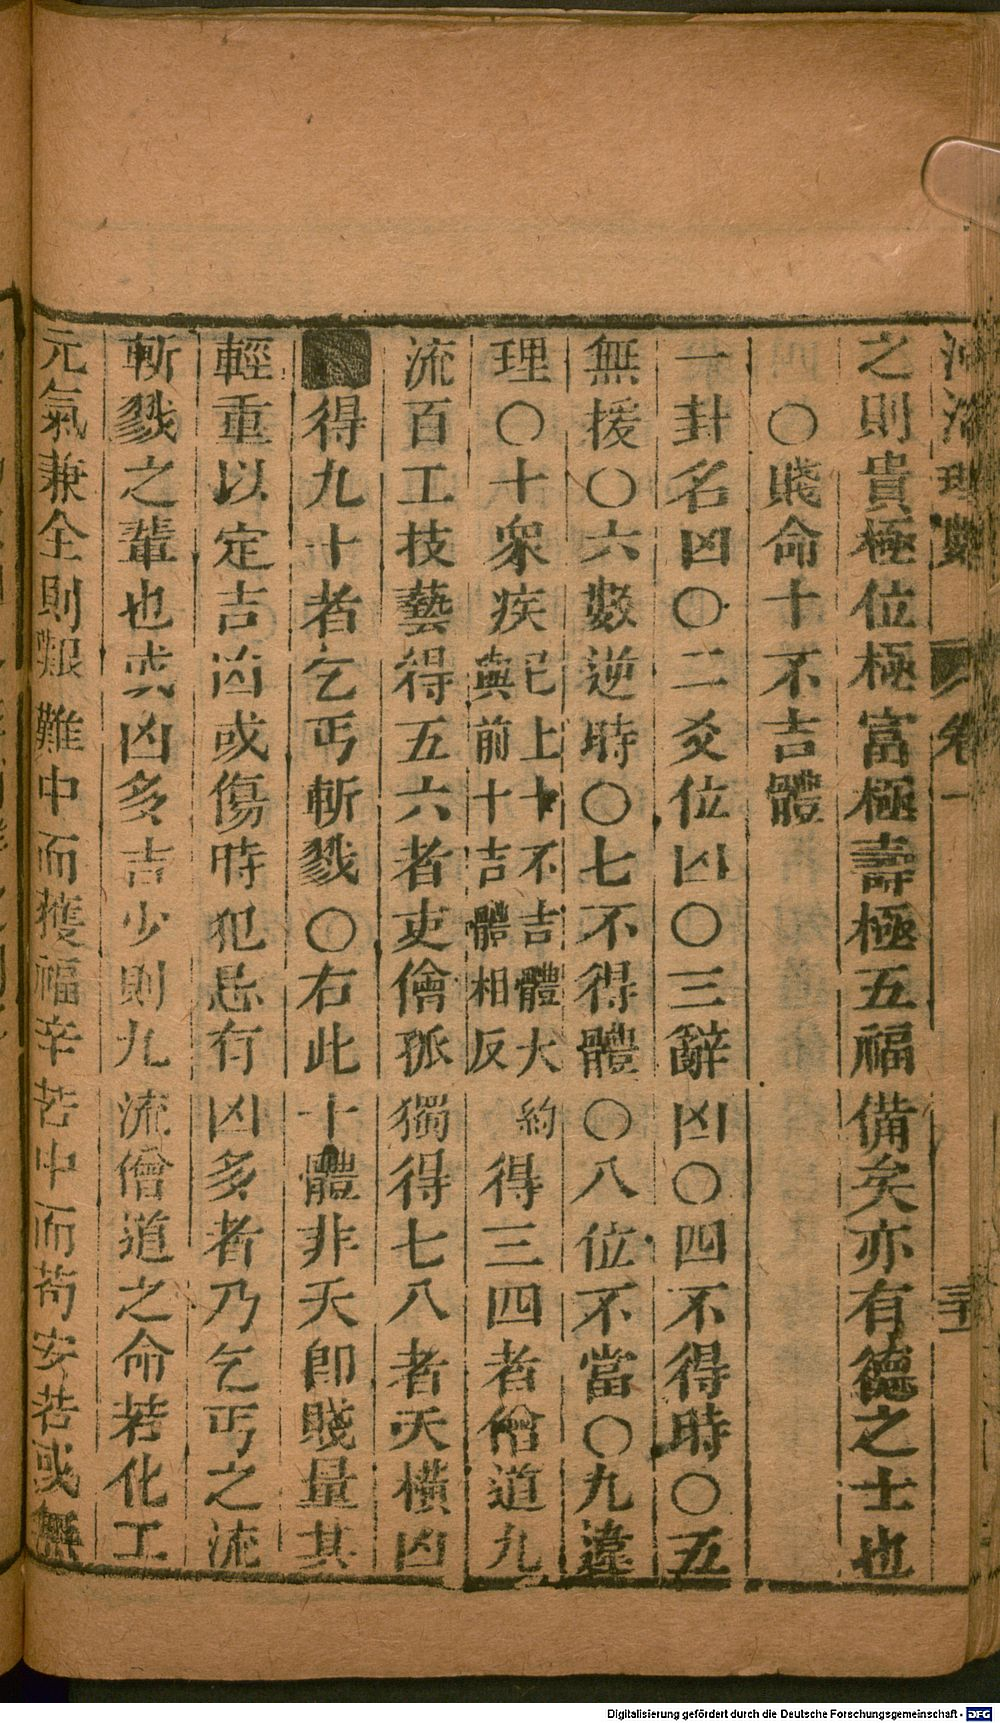 河洛理數 卷一 三十
之則貴極位極富極壽極五福備矣亦有德之士也
○賤命十不吉體
一卦名凶○二爻位凶○三辭凶○四不得時○五
無援○六數逆時○七不得體○八位不當○九違
理○十衆疾已上十不吉體大約與前十吉體相反得三四者僧道九
流百工技藝得五六者吏儈孤獨得七八者夭橫凶
得九十者乞丐斬戮○右此十體非夭卽賤量其
輕重以定吉凶或傷時犯忌有凶多者乃乞丐之流
斬戮之輩也或凶多吉少則九流僧道之命若化工
元氣兼全則艱難中而獲福辛苦中而苟安若或無
Digitalisierung gefördert durch die Deutsche Forschungsgemeinschaft - DFG